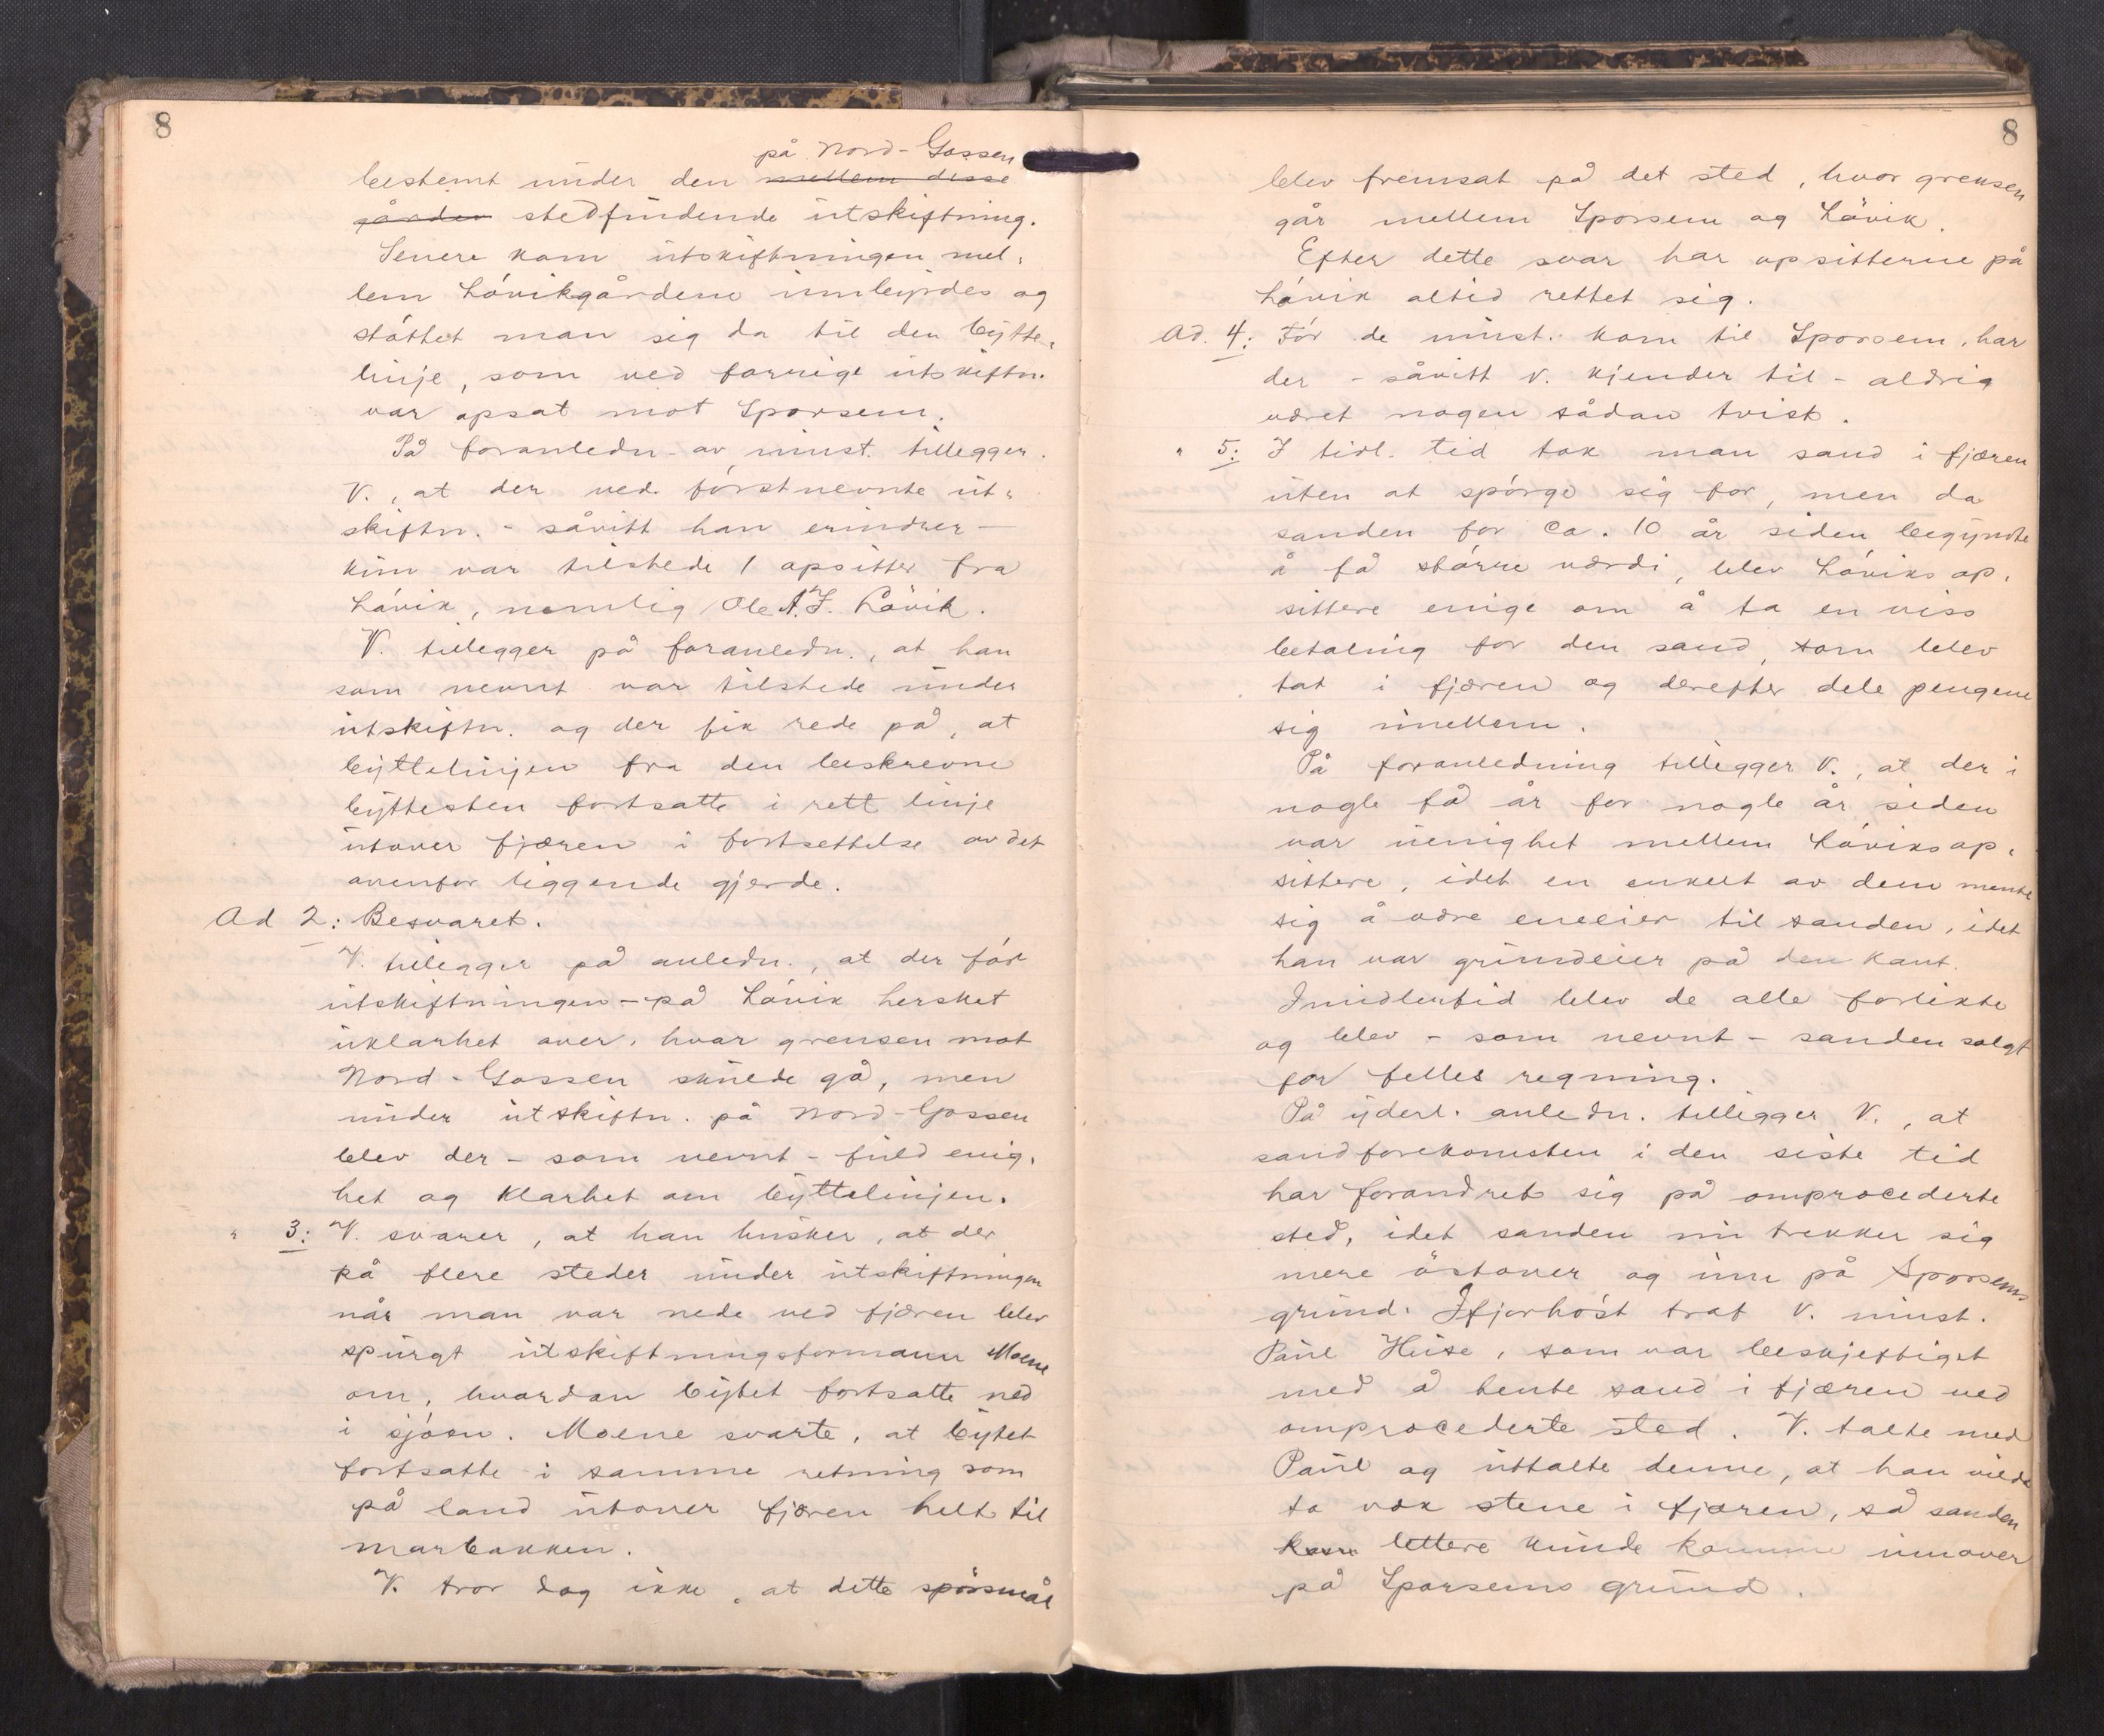 8
på Nord-Gossen
bestemt under den mellem disse
gården stedfundende utskiftning.
Senere kom utskiftningen mel-
lem Lövikgårdene innbyrdes og
støttet man sig da til den bytte-
linje, som ved forrige utskiftn.
var opsat mot Sporsem.
På foranledn. av minst. tillegger
V., at der ved førstnevnte ut-
skiftn. - såvitt han erindrer -
kun var tilstede 1 opsitter fra
Lövik, nemlig Ole A. J. Lövik.
V. tillegger på foranledn., at han
som nevnt var tilstede under
utskiftn. og der fik rede på, at
byttelinjen fra den beskrevne
byttesten fortsatte i rett linje
utover fjæren i fortsettelse av det
ovenfor liggende gjerde.
Ad 2: Besvaret.
V. tillegger på anledn., at der før
utskiftningen - på Lövik hersket
uklarhet over, hvor grensen mot
Nord-Gossen skulde gå, men
under utskiftn. på Nord-Gossen
blev der - som nevnt - fuld enig-
het og klarhet om byttelinjen.
" 3: V. svarer, at han husker, at der
på flere steder under utskiftningen
når man var nede ved fjæren blev
spurgt utskiftningsformann Moene
om, hvordan bytet fortsatte ned
i sjøen. Moene svarte, at bytet
fortsatte i samme retning som
på land utover fjæren helt til
marbakken.
V. tror dog ikke, at dette spørsmål
8
blev fremsat på det sted, hvor grensen
går mellem Sporsem og Lövik.
Efter dette svar har opsitterne på
Lövik altid rettet sig.
Ad. 4: Før de minst. kom til Sporsem, har
der - såvitt V. kjender til - aldrig
været nogen sådan tvist.
" 5: I tidl. tid tok man sand i fjæren
uten at spørge sig for, men da
sanden for ca. 10 år siden begyndte
å få større værdi, blev Löviks op-
sittere enige om å ta en viss
betaling for den sand, som blev
tat i fjæren og derefter dele pengene
sig imellem.
På foranledning tillegger V., at der i
nogle få år for nogle år siden
var uenighet mellem Löviksop-
sittere, idet en enkelt av dem mente
sig å være eneeier til sanden, idet
han var grundeier på den kant.
Imidlertid blev de alle forlikte
og blev - som nevnt - sanden solgt
for felles regning.
På yderl. anledn. tillegger V., at
sandforekomsten i den siste tid
har forandret sig på omprocederte
sted, idet sanden nu trekker sig
mere östover og inn på Sporsems
grund. Ifjorhøst traf V. minst.
Paul Huse, som var beskjeftiget
med å hente sand i fjæren ved
omprocederte sted. V. talte med
Paul og uttalte denne, at han vilde
ta væk stene i fjæren, så sanden
kom lettere kunde komme innover
på Sporsems grund.